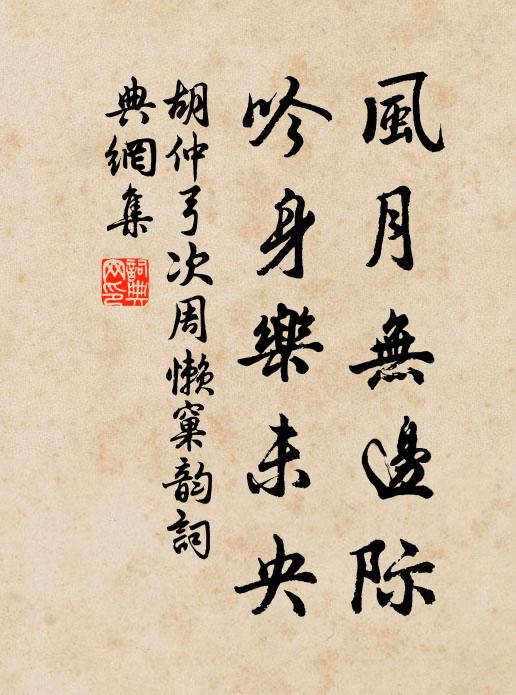 風月無邊際
吟身樂未央
胡仲弓次周懶窠韵詞
典網集
詞典
网印